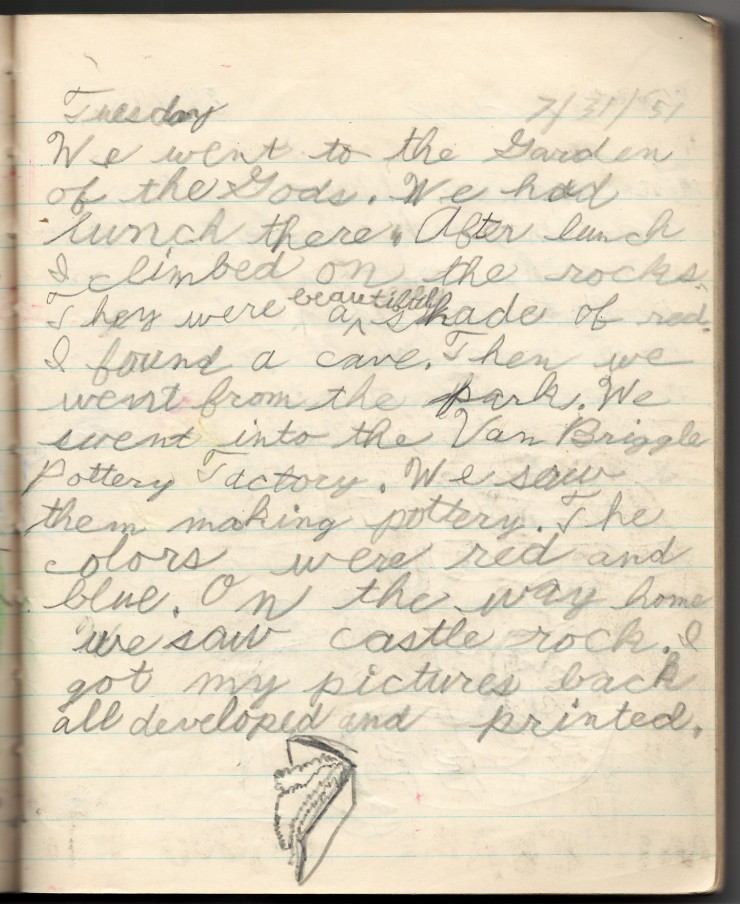 Tuesday 7/31/51
We went to the Garden
of the Gods. We had
lunch there. After lunch
I climbed on the rocks.
They were a beautiful shade of red.
I found a cave. Then we
went from the park. We
went into the Van Briggle
Pottery Factory. We saw
them making pottery. The
colors were red and
blue. On the way home
we saw castle rock. I
got my pictures back
all developed and printed.